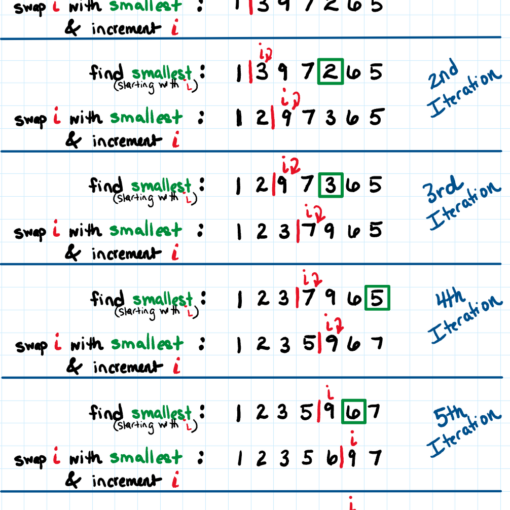 swap i with smallest : 1|3 9 7 2 6 5
& increment i
i
find smallest : 1|3 9 7 2 6 5
(starting with i)
2nd Iteration
i
swap i with smallest : 1 2|9 7 3 6 5
& increment i
i
find smallest : 1 2|9 7 3 6 5
(starting with i)
3rd Iteration
i
swap i with smallest : 1 2 3|7 9 6 5
& increment i
i
find smallest : 1 2 3|7 9 6 5
(starting with i)
4th Iteration
i
swap i with smallest : 1 2 3 5|9 6 7
& increment i
i
find smallest : 1 2 3 5|9 6 7
(starting with i)
5th Iteration
i
swap i with smallest : 1 2 3 5 6|9 7
& increment i
i